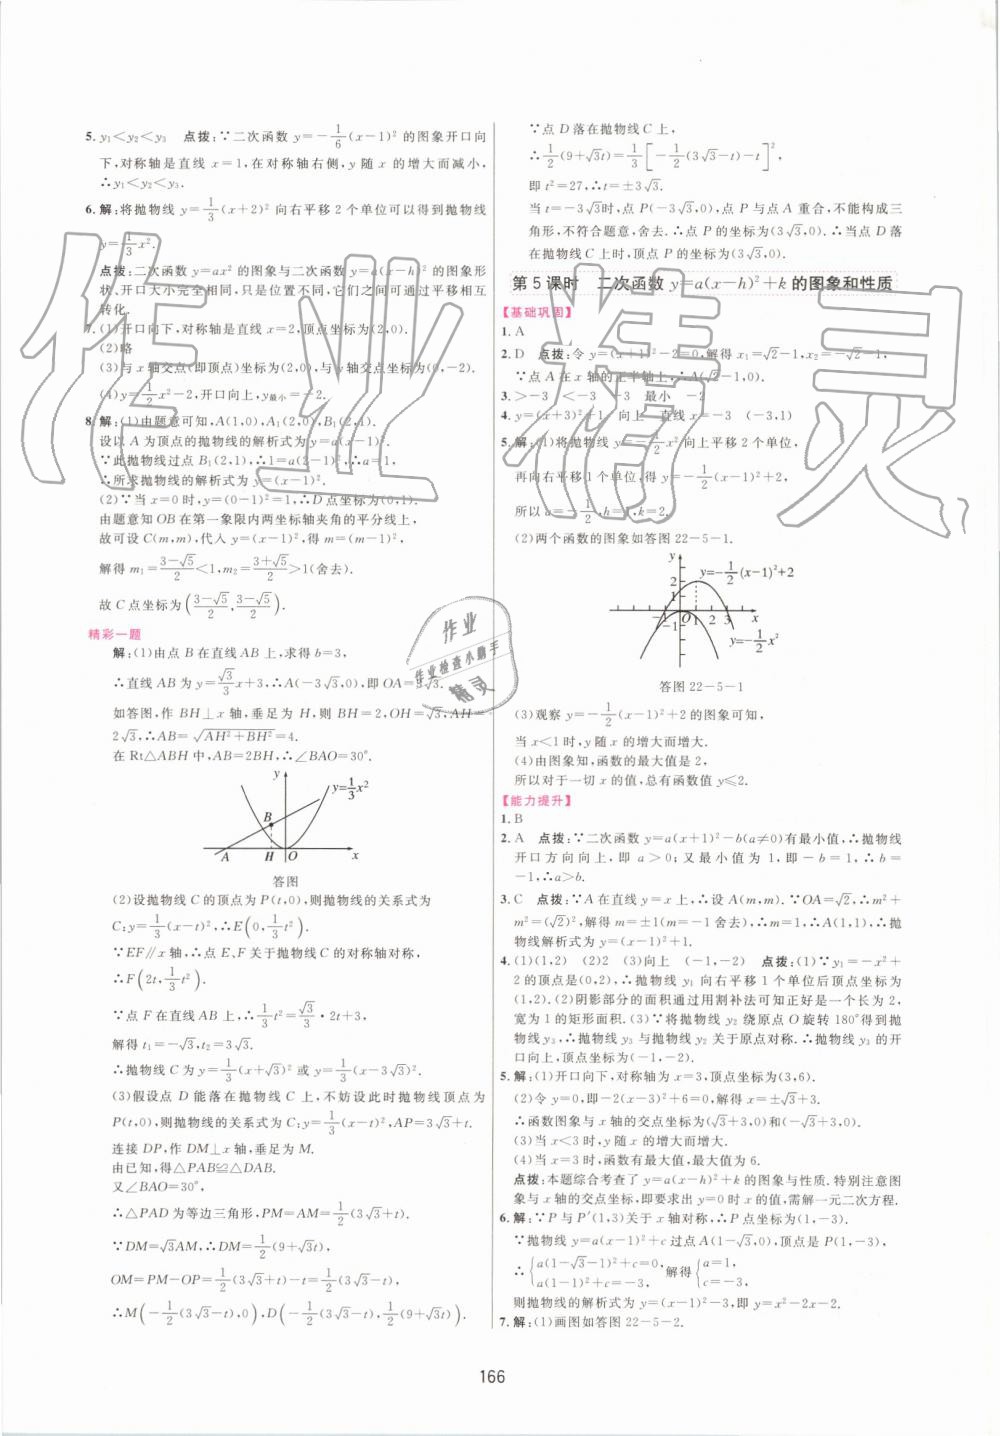 5. y₁<y₂<y₃ 点拨:∵二次函数 y=-1/6(x-1)² 的图象开口向
下,对称轴是直线 x=1,在对称轴右侧,y 随 x 的增大而减小,
∴y₁<y₂<y₃.
6. 解:将抛物线 y=1/3(x+2)² 向右平移 2 个单位可以得到抛物线
y=1/3x².
点拨:二次函数 y=ax² 的图象与二次函数 y=a(x-h)² 的图象形
状、开口大小完全相同,只是位置不同,它们之间可通过平移相互
转化.
7. (1)开口向下,对称轴是直线 x=2,顶点坐标为(2,0).
(2)略
(3)与 x 轴交点(即顶点)坐标为(2,0),与 y 轴交点坐标为(0,-2).
8. 解:(1)由题意可知,A(1,0),A₁(2,0),B₁(2,1).
设以 A 为顶点的抛物线的解析式为 y=a(x-1)²,
∵此抛物线过点 B₁(2,1),∴1=a(2-1)²,∴a=1,
∴所求抛物线的解析式为 y=(x-1)².
(2)∵当 x=0 时,y=(0-1)²=1,∴D 点坐标为(0,1).
由题意知 OB 在第一象限内两坐标轴夹角的平分线上,
故可设 C(m,m),代入 y=(x-1)²,得 m=(m-1)²,
解得 m₁=(3-√5)/2<1,m₂=(3+√5)/2>1(舍去).
故 C 点坐标为((3-√5)/2,(3-√5)/2).
精彩一题
解:(1)由点 B 在直线 AB 上,求得 b=3,
∴直线 AB 为 y=√3/3x+3,∴A(-3√3,0),即 OA=3√3.
如答图,作 BH⊥x 轴,垂足为 H,则 BH=2,OH=√3,AH=
2√3,∴AB=√(AH²+BH²)=4.
在 Rt△ABH 中,AB=2BH,∴∠BAO=30°.
y
y=1/3x²
B
A H O x
答图
(2)设抛物线 C 的顶点为 P(t,0),则抛物线的关系式为
C:y=1/3(x-t)²,∴E(0,1/3t²).
∵EF∥x 轴,∴点 E、F 关于抛物线 C 的对称轴对称,
∴F(2t,1/3t²).
∵点 F 在直线 AB 上,∴1/3t²=√3/3·2t+3,
解得 t₁=-√3,t₂=3√3.
∴抛物线 C 为 y=1/3(x+√3)² 或 y=1/3(x-3√3)².
(3)假设点 D 能落在抛物线 C 上,不妨设此时抛物线顶点为
P(t,0),则抛物线的关系式为 C:y=1/3(x-t)²,AP=3√3+t.
连接 DP,作 DM⊥x 轴,垂足为 M.
由已知,得△PAB≌△DAB.
又∠BAO=30°,
∴△PAD 为等边三角形,PM=AM=1/2(3√3+t),
∵DM=√3AM,∴DM=1/2(9+√3t)
OM=PM-OP=1/2(3√3+t)-t=1/2(3√3-t),
∴M(-1/2(3√3-t),0),D(-1/2(3√3-t),1/2(9+√3t)).
∵点 D 落在抛物线 C 上,
∴1/2(9+√3t)=1/3[-1/2(3√3-t)-t]²,
即 t²=27,∴t=±3√3.
当 t=-3√3时,点 P(-3√3,0),点 P 与点 A 重合,不能构成三
角形,不符合题意,舍去.∴点 P 的坐标为(3√3,0).∴当点 D 落
在抛物线 C 上时,顶点 P 的坐标为(3√3,0).
第 5 课时 二次函数 y=a(x-h)²+k 的图象和性质
【基础巩固】
1. A
2. D 点拨:令 y=(x+1)²-2=0,解得 x₁=√2-1,x₂=-√2-1,
∵点 A 在 x 轴的正半轴上,∴A(√2-1,0).
3. >-3 <-3 -3 最小 -2
4. y=(x+3)²+1 向上 直线 x=-3 (-3,1)
5. 解:(1)将抛物线 y=-1/2x² 向上平移 2 个单位,
再向右平移 1 个单位,得 y=-1/2(x-1)²+2,
所以 a=-1/2,h=1,k=2.
(2)两个函数的图象如答图 22-5-1.
y
y=-1/2(x-1)²+2
2
1
O 1 2 3 x
-1
y=-1/2x²
答图 22-5-1
(3)观察 y=-1/2(x-1)²+2 的图象可知,
当 x<1 时,y 随 x 的增大而增大.
(4)由图象知,函数的最大值是 2,
所以对于一切 x 的值,总有函数值 y≤2.
【能力提升】
1. B
2. A 点拨:∵二次函数 y=a(x+1)²-b(a≠0)有最小值,∴抛物线
开口方向向上,即 a>0;又最小值为 1,即-b=1,∴b=
-1,∴a>b.
3. C 点拨:∵A 在直线 y=x 上,∴设 A(m,m).∵OA=√2,∴m²+
m²=(√2)²,解得 m=±1(m=-1 舍去),∴m=1,∴A(1,1),∴抛
物线解析式为 y=(x-1)²+1.
4. (1)(1,2) (2)2 (3)向上 (-1,-2) 点拨:(1)∵y₁=-x²+
2 的顶点是(0,2),∴抛物线 y₁ 向右平移 1 个单位后顶点坐标为
(1,2).(2)阴影部分的面积通过用割补法可知正好是一个长为 2,
宽为 1 的矩形面积.(3)∵将抛物线 y₂ 绕原点 O 旋转 180°得到抛
物线 y₃,∴抛物线 y₃ 与抛物线 y₂ 关于原点对称.∴抛物线 y₃ 的开
口向上,顶点坐标为(-1,-2).
5. 解:(1)开口向下,对称轴为 x=3,顶点坐标为(3,6).
(2)令 y=0,即-2(x-3)²+6=0,解得 x=±√3+3.
∴函数图象与 x 轴的交点坐标为(√3+3,0)和(-√3+3,0).
(3)当 x<3 时,y 随 x 的增大而增大.
(4)当 x=3 时,函数有最大值,最大值为 6.
点拨:本题综合考查了 y=a(x-h)²+k 的图象与性质.特别注意图
象与 x 轴的交点坐标,即要求出 y=0 时 x 的值,需解一元二次方程.
6. 解:∵P 与 P′(1,3)关于 x 轴对称,∴P 点坐标为(1,-3).
∵抛物线 y=a(x-1)²+c 过点 A(1-√3,0),顶点是 P(1,-3),
∴{a(1-√3-1)²+c=0, a(1-1)²+c=-3, 解得{a=1, c=-3,
则抛物线的解析式为 y=(x-1)²-3,即 y=x²-2x-2.
7. 解:(1)画图如答图 22-5-2.
166
作业精灵
作业
作业检查小助手
精灵